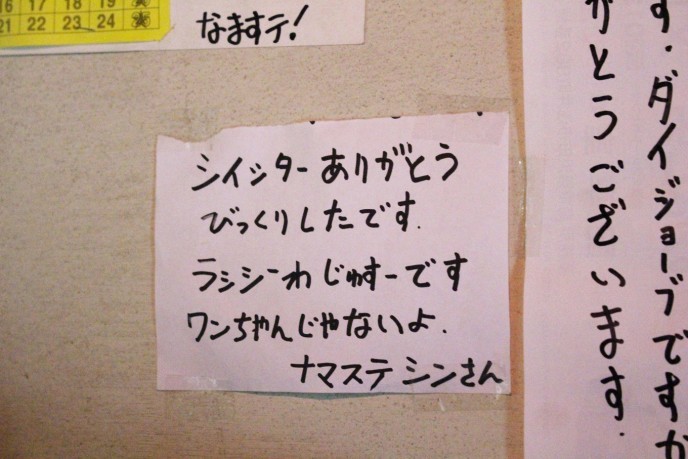 16 17 18 19
21 22 23 24
なますテ!
シイッターありがとう
びっくりしたです.
ラシシーわじゅすーです
ワンちゃんじゃないよ.
ナマステ シンさん
す.ダイジョーブですか
がとうございます.